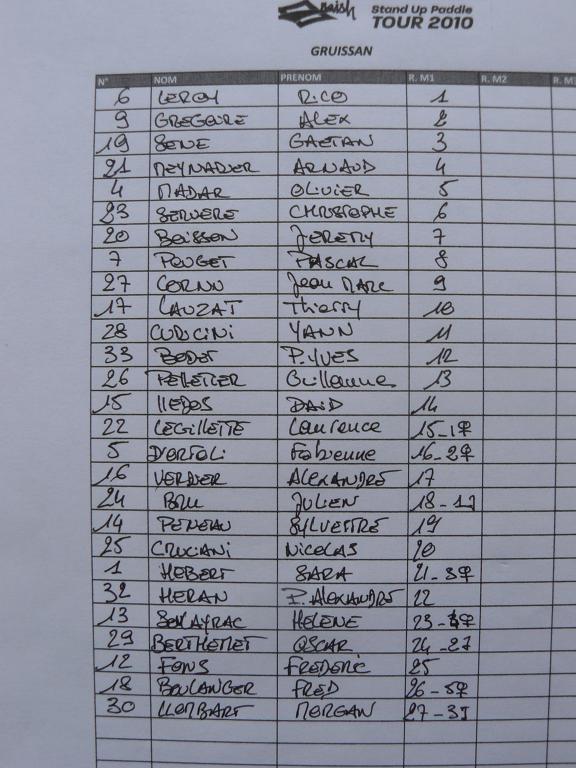 naish Stand Up Paddle
TOUR 2010
GRUISSAN
N° NOM PRENOM R. M1 R. M2 R. M
6 LEROY RICO 1
9 GREGOIRE ALEX 2
19 SENE GAETAN 3
21 MEYNADIER ARNAUD 4
4 MADAR OLIVIER 5
23 SERVERE CHRISTOPHE 6
20 BOISSON JEREMY 7
7 POUGET PASCAL 8
27 CORNU Jean MARC 9
17 CAUZAT Thierry 10
28 CURCINI YANN 11
33 BODET P.YVES 12
26 PELLETIER Guillaume 13
15 LLEDOS DAID 14
22 LEGILLETTE Laurence 15-1♀
5 D'ORTOLI Fabienne 16-2♀
16 VERDIER ALEXANDRE 17
24 BRU JULIEN 18-1J
14 PENEAU SYLVESTRE 19
25 CRUCIANI NICOLAS 20
1 HEBERT SARA 21-3♀
32 HERAN P.ALEXANDRE 22
13 HELENE 23-4♀
29 BERTHEMET OSCAR 24-2J
12 FONS FREDERIC 25
18 BOULANGER FRED 26-5♀
30 LLOMBART MORGAN 27-3J